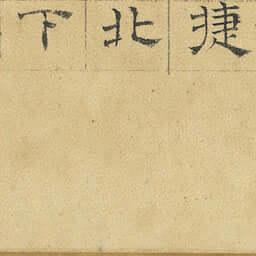 捷
北
下